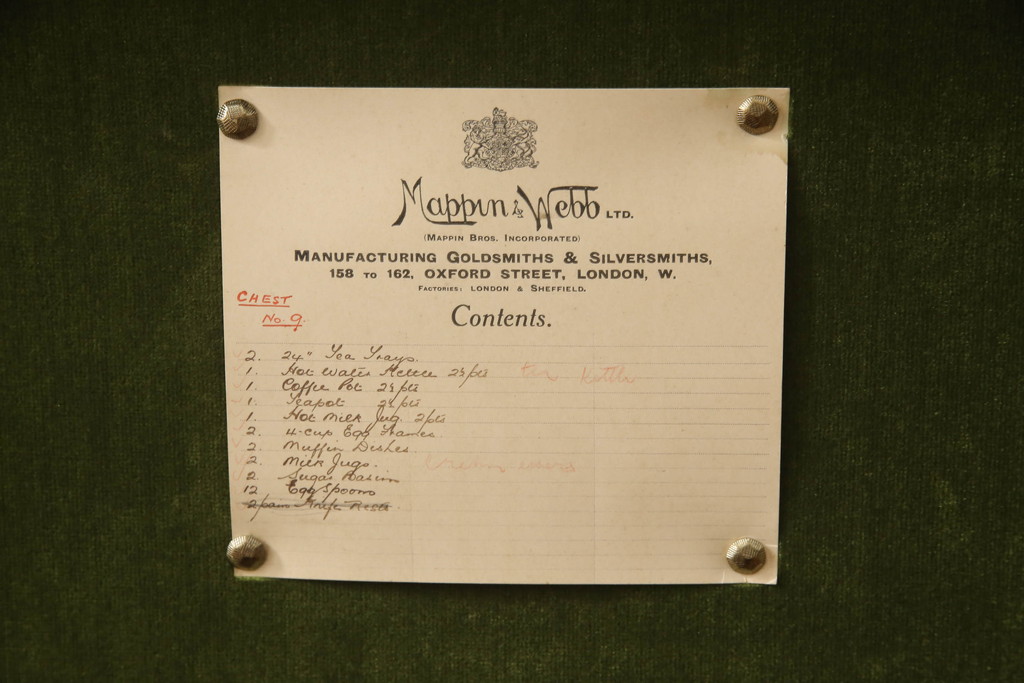 Mappin & Webb LTD.
(MAPPIN BROS. INCORPORATED)
MANUFACTURING GOLDSMITHS & SILVERSMITHS,
158 TO 162, OXFORD STREET, LONDON, W.
FACTORIES: LONDON & SHEFFIELD.
CHEST
No. 9.
Contents.
2. 24" Tea Trays.
1. Hot Water 2½ pts Kettle
1. Coffee Pot 2½ pts
1. Teapot 2½ pts
1. Hot Milk Jug. 2 pts
2. 4-cup Egg Frames
2. Muffin Dishes.
2. Milk Jugs.
2. Sugar Basins
12 Egg Spoons
2 pairs Knife Rests